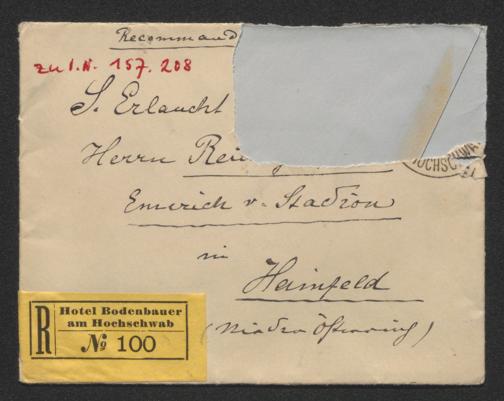 Recommand
zu I.N. 157.208
S. Erlaucht
Herrn
Emerich v. Stadion
in
Hainfeld
(Nieder Österreich)
HOCHSCHWA
R
Hotel Bodenbauer
am Hochschwab
No 100